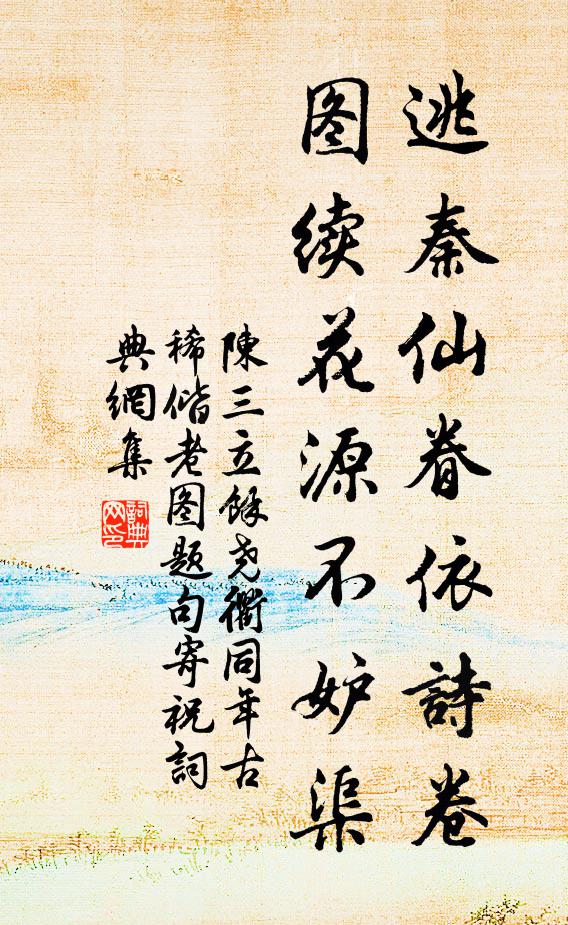 逃秦仙眷依詩卷
图续花源不妒渠
陳三立餘尧衢同年古
稀偕老图题句寄祝詞
典網集
詞典網印